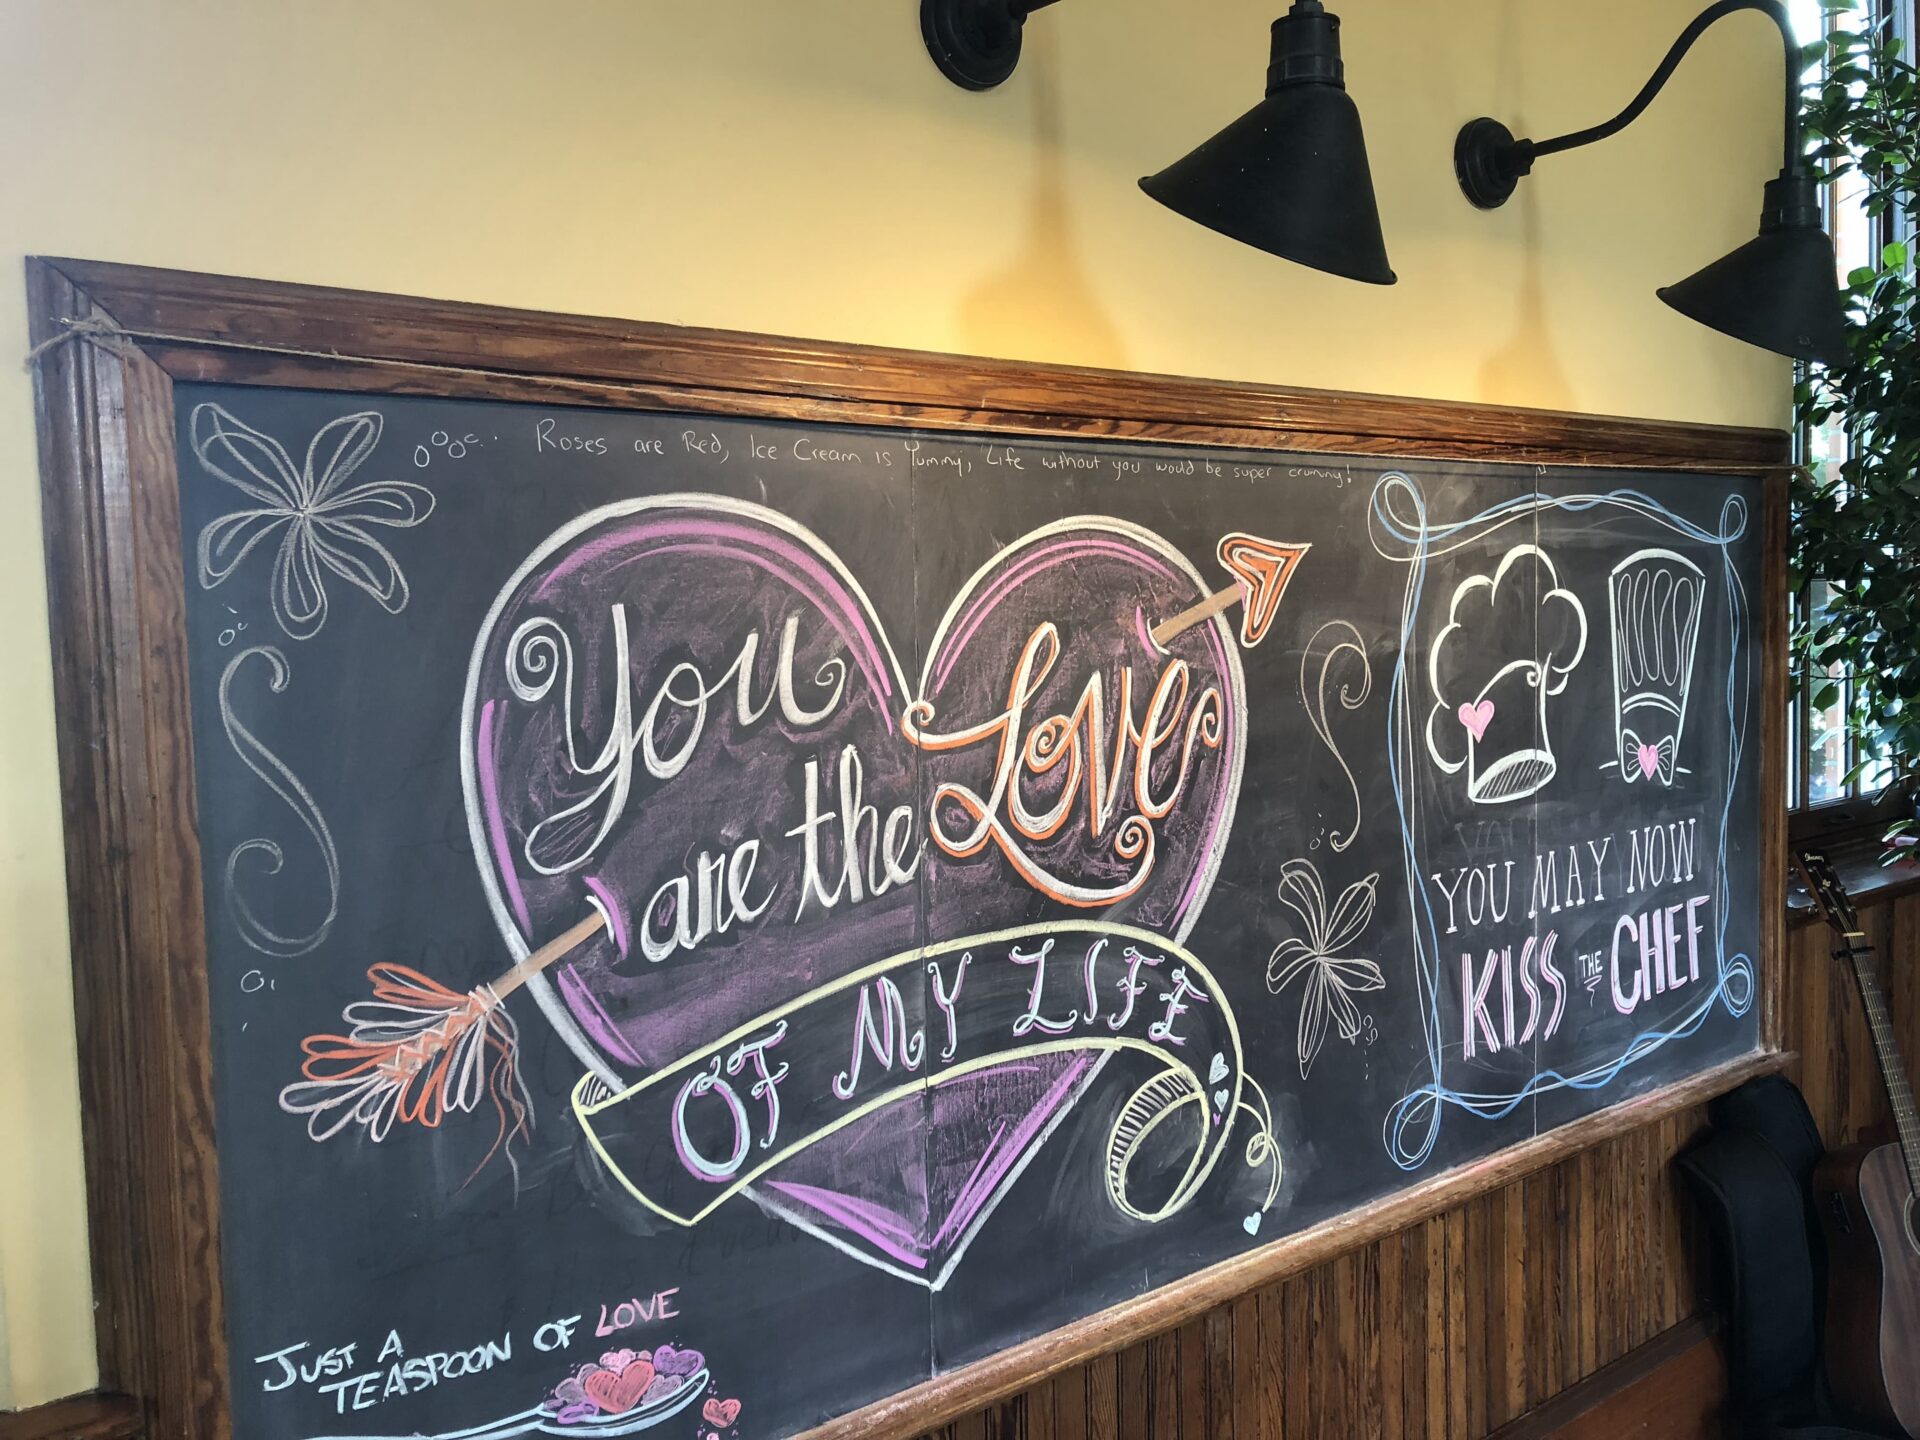 Roses are Red, Ice Cream is Yummy, Life without you would be super crummy!
You
are the Love
OF MY LIFE
YOU MAY NOW
KISS THE CHEF
JUST A
TEASPOON OF LOVE
Ibanez